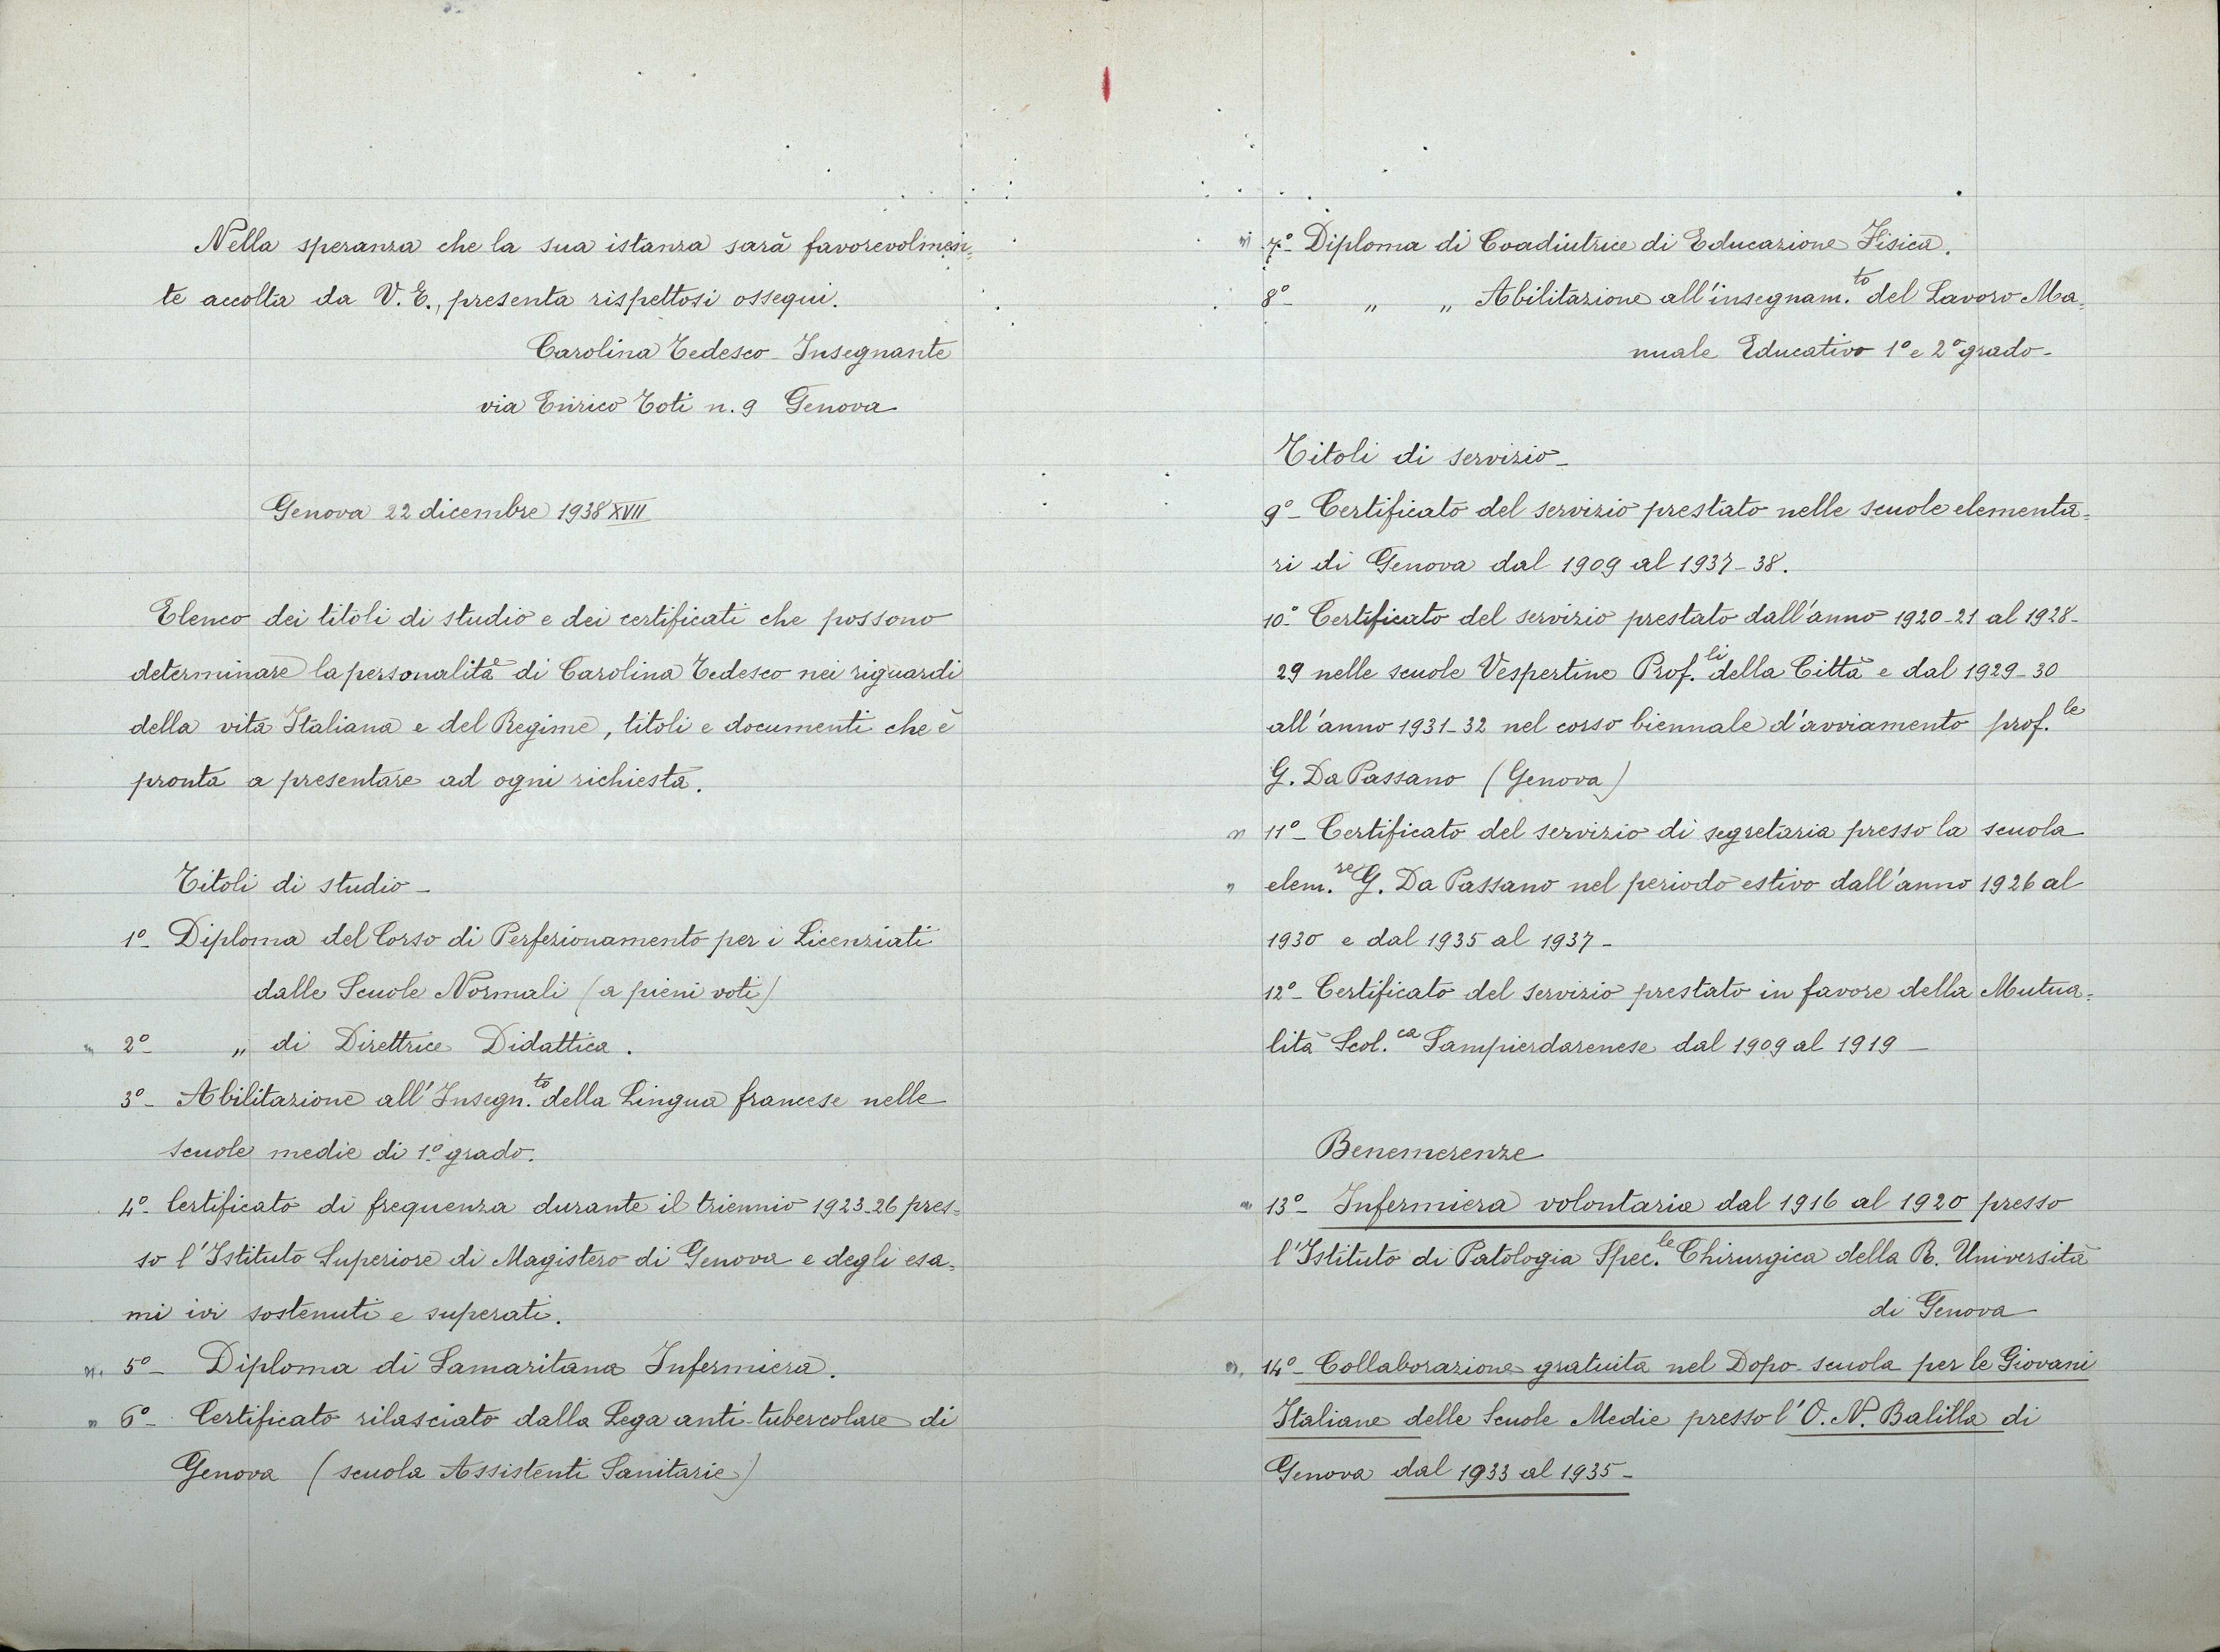 Nella speranza che la sua istanza sarà favorevolmen=
te accolta da V. E., presenta rispettosi ossequi.
Carolina Tedesco - Insegnante
via Enrico Toti n. 9 Genova
Genova 22 dicembre 1938 XVII
Elenco dei titoli di studio e dei certificati che possono
determinare la personalità di Carolina Tedesco nei riguardi
della vita Italiana e del Regime, titoli e documenti che è
pronta a presentare ad ogni richiesta.
Titoli di studio -
1º - Diploma del Corso di Perfezionamento per i Licenziati
dalle Scuole Normali (a pieni voti)
2º - " di Direttrice Didattica.
3º - Abilitazione all'Insegn.to della Lingua francese nelle
scuole medie di 1º grado.
4º - Certificato di frequenza durante il triennio 1923-26 pres=
so l'Istituto Superiore di Magistero di Genova e degli esa=
mi ivi sostenuti e superati.
5º - Diploma di Samaritana Infermiera.
6º - Certificato rilasciato dalla Lega anti-tubercolare di
Genova (scuola Assistenti Sanitarie)
7º - Diploma di Coadiutrice di Educazione Fisica.
8º - " " Abilitazione all'insegnam.to del Lavoro Ma=
nuale Educativo 1º e 2º grado -
Titoli di servizio -
9º - Certificato del servizio prestato nelle scuole elementa=
ri di Genova dal 1909 al 1937-38.
10º - Certificato del servizio prestato dall'anno 1920-21 al 1928-
29 nelle scuole Vespertine Prof.li della Città e dal 1929-30
all'anno 1931-32 nel corso biennale d'avviamento prof.le
G. Da Passano (Genova)
11º - Certificato del servizio di segretaria presso la scuola
elem.re G. Da Passano nel periodo estivo dall'anno 1926 al
1930 e dal 1935 al 1937 -
12º - Certificato del servizio prestato in favore della Mutua=
lità Scol.ca Sampierdarenese dal 1909 al 1919 -
Benemerenze
13º - Infermiera volontaria dal 1916 al 1920 presso
l'Istituto di Patologia Spec.le Chirurgica della R. Università
di Genova
14º - Collaborazione gratuita nel Dopo-scuola per le Giovani
Italiane delle Scuole Medie presso l'O. N. Balilla di
Genova dal 1933 al 1935 -